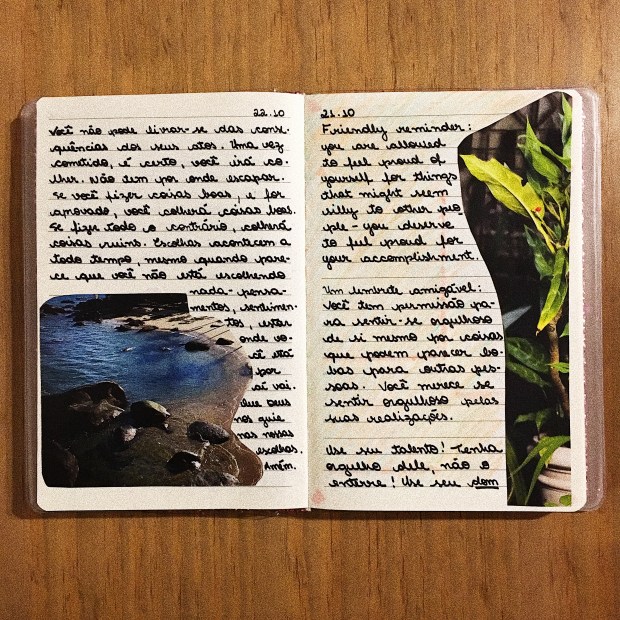 22.10
Você não pode livrar-se das conse-
quências dos seus atos. Uma vez
cometido, é certo, você irá co-
lher. Não tem por onde escapar.
Se você fizer coisas boas, e for
aprovado, você colherá coisas boas.
Se fizer todo o contrário, colherá
coisas ruins. Escolhas acontecem a
todo tempo, mesmo quando pare-
ce que você não está escolhendo
nada - pensa-
mentos, sentimen-
tos, estar
onde vo-
cê está
por
aí vai.
Que Deus
nos guie
nas nossas
escolhas.
Amém.
21.10
Friendly reminder:
you are allowed
to feel proud of
yourself for things
that might seem
silly to other peo
ple - you deserve
to feel proud for
your accomplishment.
Um lembrete amigável:
Você tem permissão pa-
ra sentir-se orgulhoso
de si mesmo por coisas
que podem parecer bo-
bas para outras pes-
soas. Você merece se
sentir orgulhoso pelas
suas realizações.
Use seu talento! Tenha
orgulho dele, não o
enterre! Use seu dom